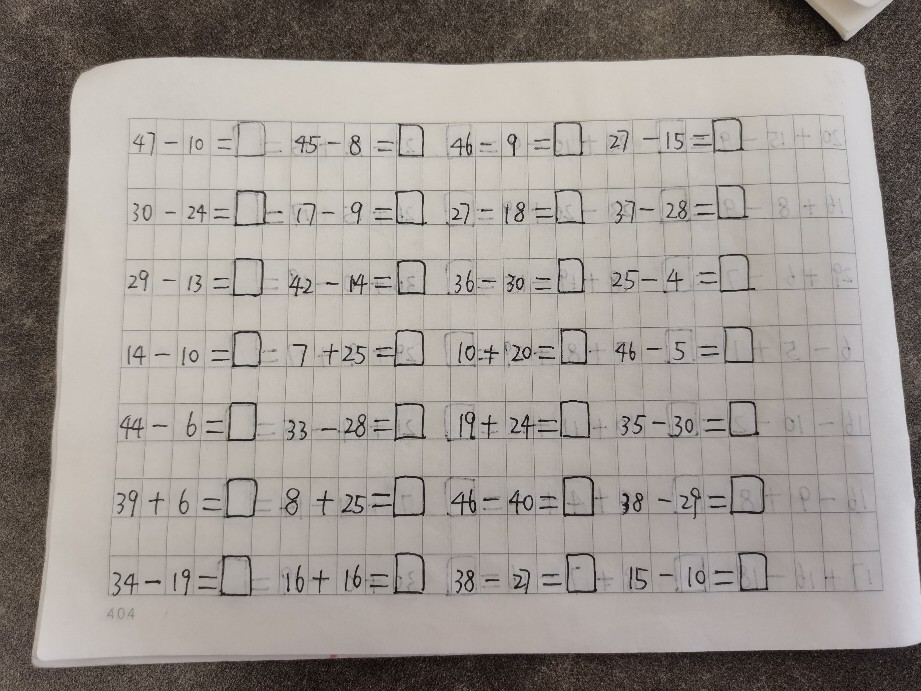 47 - 10 = □ 45 - 8 = □ 46 - 9 = □ 27 - 15 = □
30 - 24 = □ 17 - 9 = □ 27 - 18 = □ 37 - 28 = □
29 - 13 = □ 42 - 14 = □ 36 - 30 = □ 25 - 4 = □
14 - 10 = □ 7 + 25 = □ 10 + 20 = □ 46 - 5 = □
44 - 6 = □ 33 - 28 = □ 19 + 24 = □ 35 - 30 = □
39 + 6 = □ 8 + 25 = □ 46 - 40 = □ 38 - 29 = □
34 - 19 = □ 16 + 16 = □ 38 - 27 = □ 15 - 10 = □
404